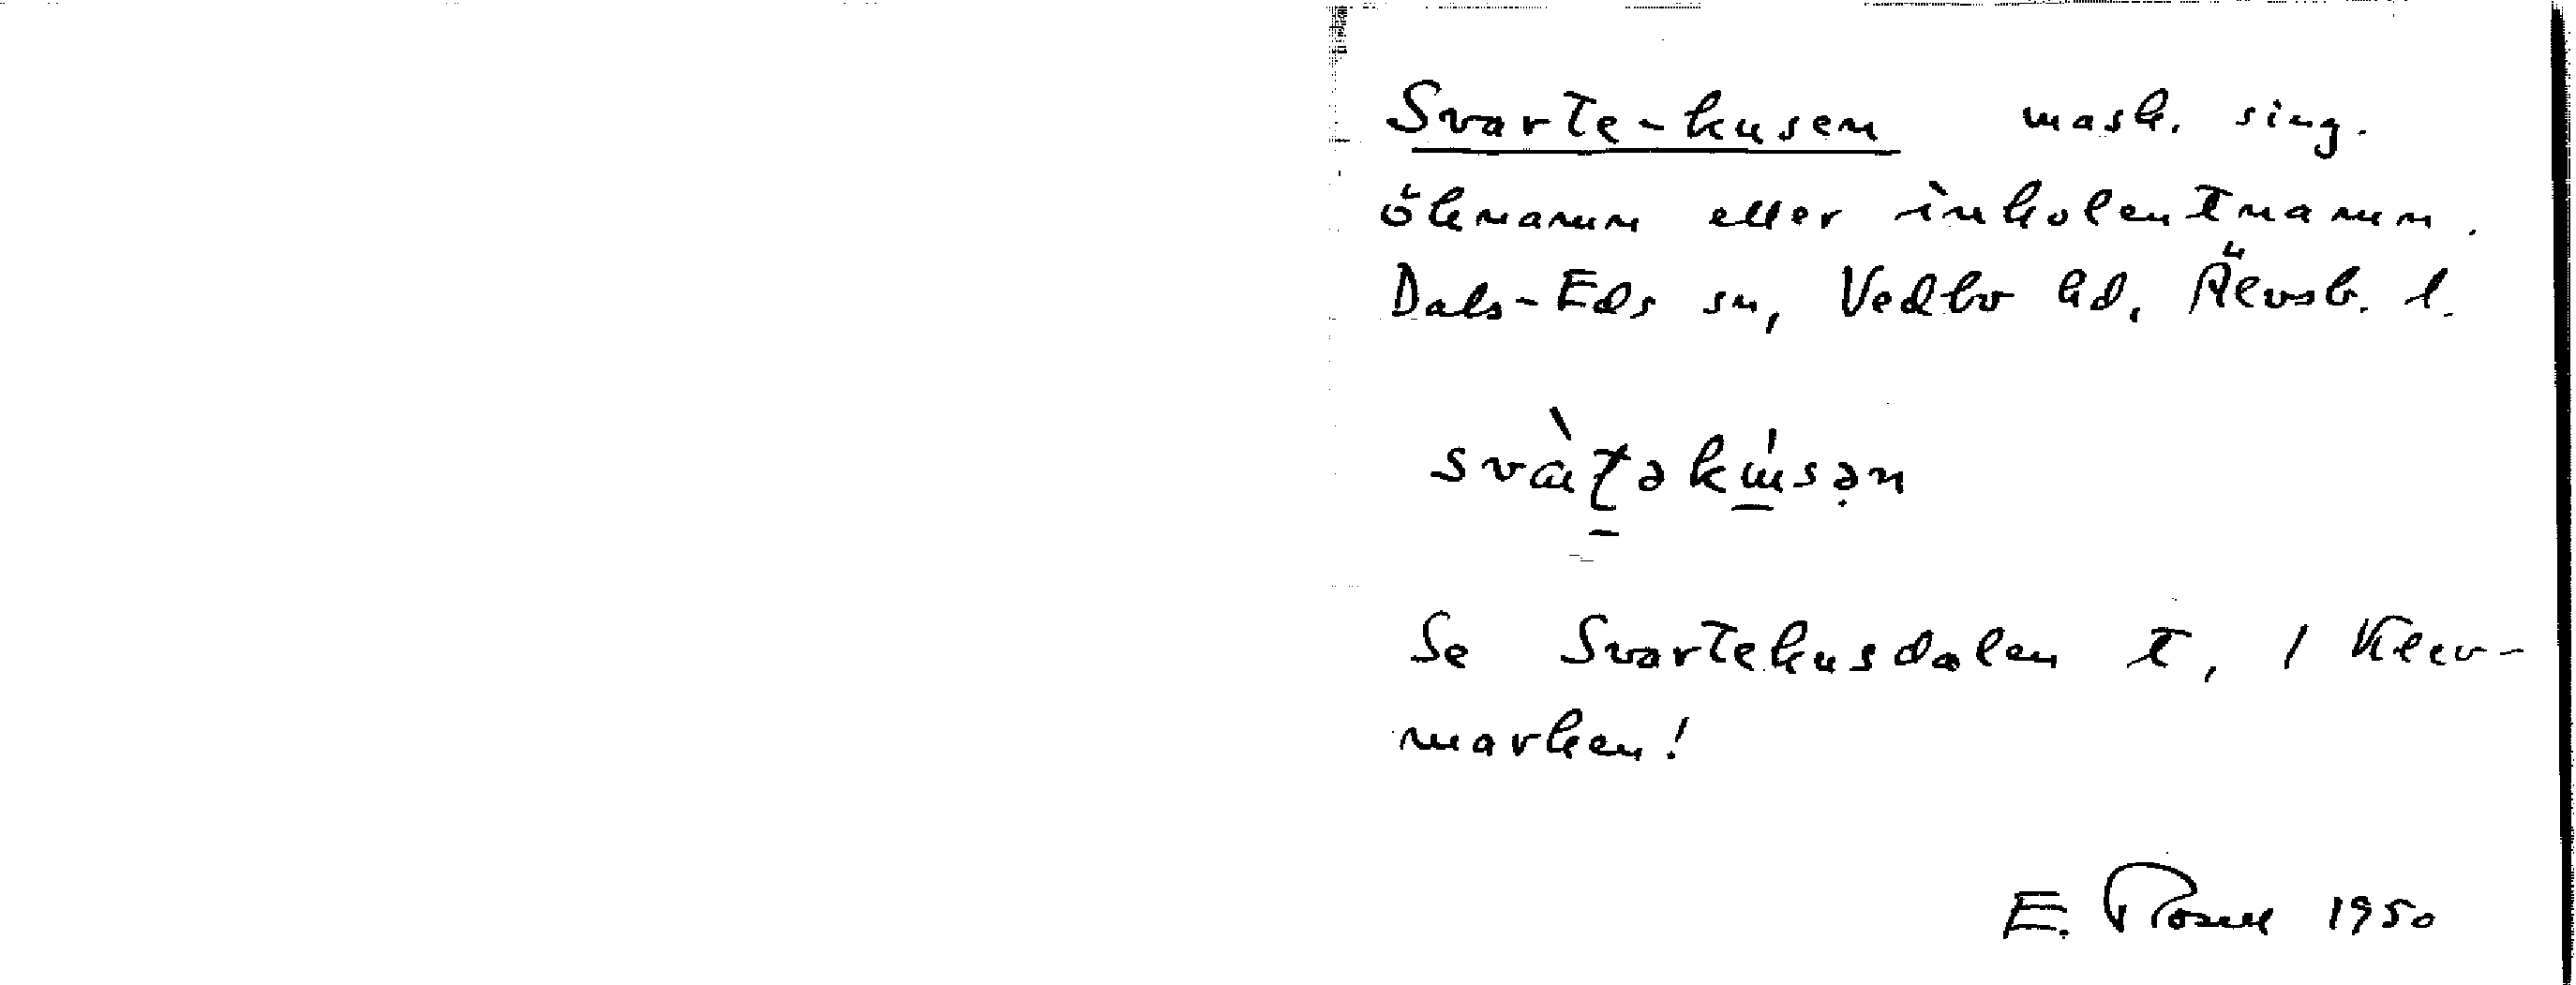 Svarte-kusen mask. sing.
öknamn eller inkolentnamn.
Dals-Eds sn, Vedbo hd, Älvsb. l.
Se Svartekusdalen t, 1 Klev-
marken!
E. Rosell 1950